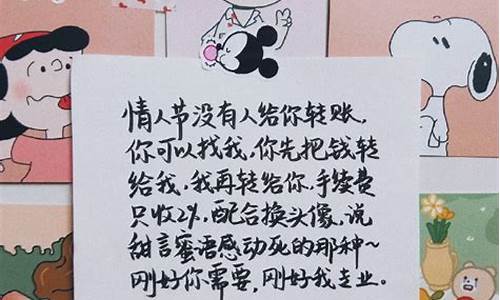 情人节没有人给你转账，
你可以找我，你先把钱转
给我，我再转给你，手续费
只收2%，配合换头像，说
甜言蜜语感动死的那种~
刚好你需要，刚好我专业。